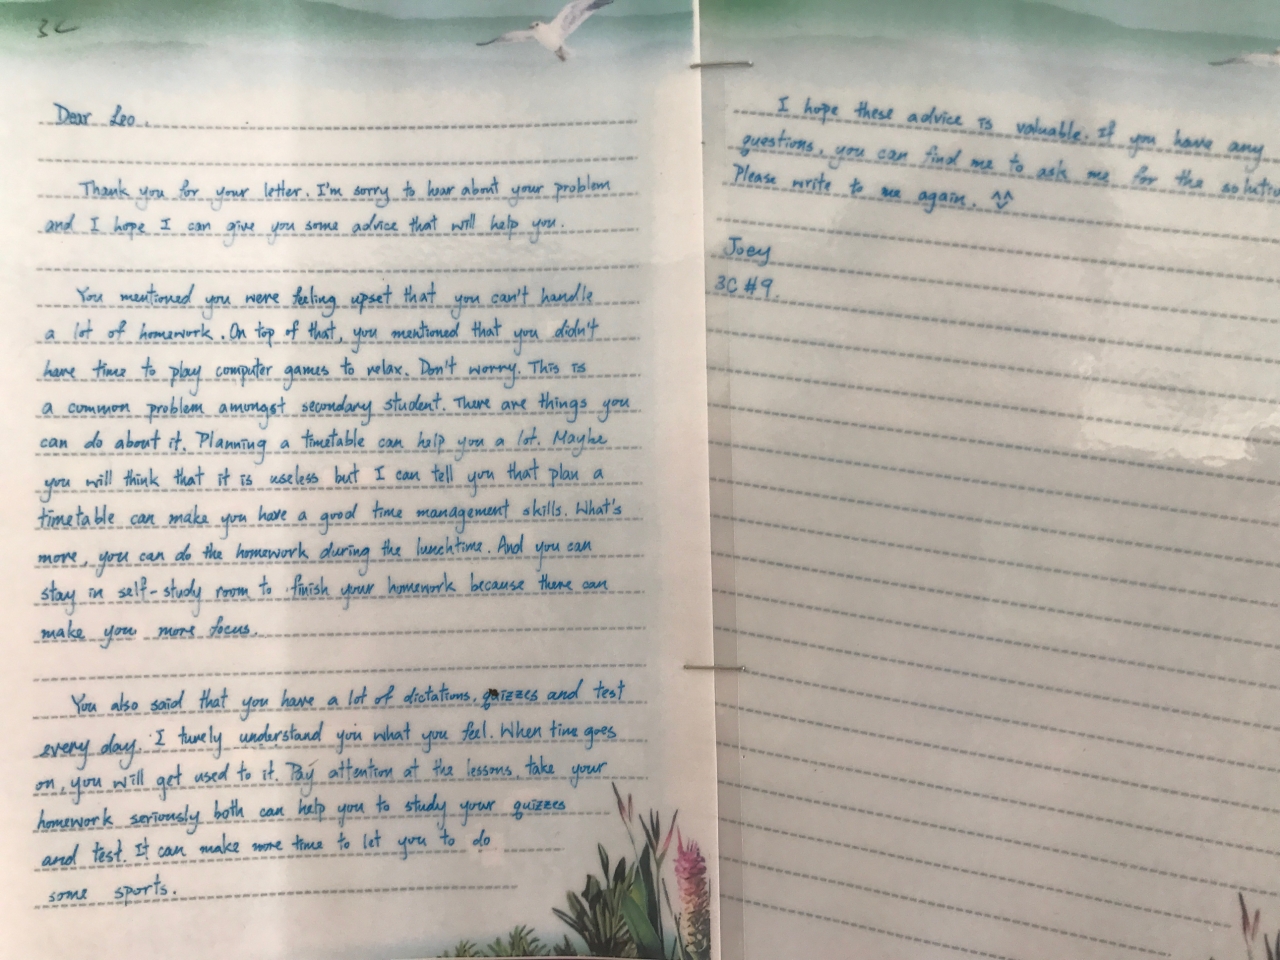 3C
Dear Leo,
Thank you for your letter. I'm sorry to hear about your problem
and I hope I can give you some advice that will help you.
You mentioned you were feeling upset that you can't handle
a lot of homework. On top of that, you mentioned that you didn't
have time to play computer games to relax. Don't worry. This is
a common problem amongst secondary student. There are things you
can do about it. Planning a timetable can help you a lot. Maybe
you will think that it is useless but I can tell you that plan a
timetable can make you have a good time management skills. What's
more, you can do the homework during the lunchtime. And you can
stay in self-study room to finish your homework because there can
make you more focus.
You also said that you have a lot of dictations, quizzes and test
every day. I turely understand you what you feel. When time goes
on, you will get used to it. Pay attention at the lessons, take your
homework seriously both can help you to study your quizzes
and test. It can make more time to let you to do
some sports.
I hope these advice is valuable. If you have any
questions, you can find me to ask me for the
Please write to me again. ^^
Joey
3C #9.